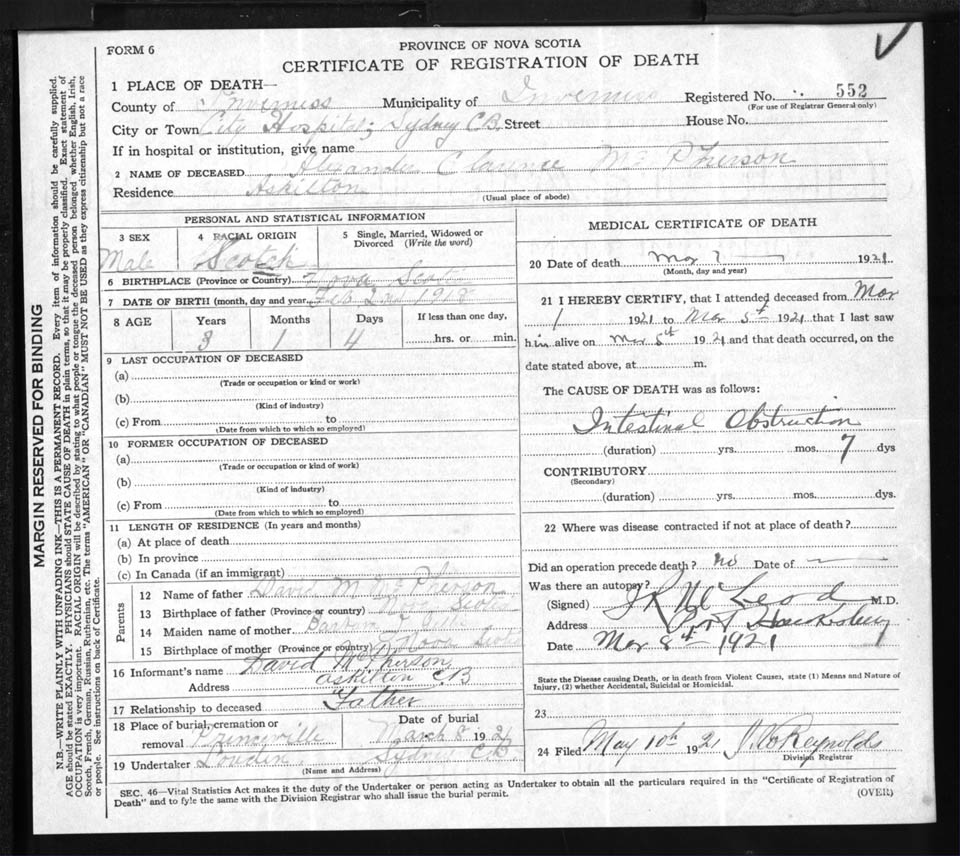 FORM 6
PROVINCE OF NOVA SCOTIA
CERTIFICATE OF REGISTRATION OF DEATH
1 PLACE OF DEATH—
County of Inverness Municipality of Inverness Registered No. 552
(For use of Registrar General only)
City or Town City Hospital; Sydney C.B. Street House No.
If in hospital or institution, give name
2 NAME OF DECEASED Alexander Clarence McPherson
Residence Askilton
(Usual place of abode)
PERSONAL AND STATISTICAL INFORMATION
3 SEX
Male
4 RACIAL ORIGIN
Scotch
5 Single, Married, Widowed or Divorced (Write the word)
6 BIRTHPLACE (Province or Country) Nova Scotia
7 DATE OF BIRTH (month, day and year) Feb 2nd 1918
8 AGE Years Months Days If less than one day,
3 1 4 hrs. or min.
9 LAST OCCUPATION OF DECEASED
(a)
(Trade or occupation or kind or work)
(b)
(Kind of industry)
(c) From to
(Date from which to which so employed)
10 FORMER OCCUPATION OF DECEASED
(a)
(Trade or occupation or kind of work)
(b)
(Kind of industry)
(c) From to
(Date from which to which so employed)
11 LENGTH OF RESIDENCE (In years and months)
(a) At place of death
(b) In province
(c) In Canada (if an immigrant)
Parents
12 Name of father David M McPherson
13 Birthplace of father (Province or country) Nova Scotia
14 Maiden name of mother Barbara
15 Birthplace of mother (Province or country) Nova Scotia
16 Informant's name David McPherson
Address Askilton C.B
17 Relationship to deceased Father
18 Place of burial, cremation or removal Princeville
Date of burial March 8 1921
19 Undertaker Sydney C.B.
(Name and Address)
MEDICAL CERTIFICATE OF DEATH
20 Date of death Mar 7 1921
(Month, day and year)
21 I HEREBY CERTIFY, that I attended deceased from Mar
1 1921 to Mar 5th 1921 that I last saw
him alive on Mar 5th 1921 and that death occurred, on the
date stated above, at m.
The CAUSE OF DEATH was as follows:
Intestinal Obstruction
(duration) yrs. mos. 7 dys
CONTRIBUTORY
(Secondary)
(duration) yrs. mos. dys.
22 Where was disease contracted if not at place of death?
Did an operation precede death? no Date of —
Was there an autopsy?
(Signed) McLeod M.D.
Address Port Hawkesbury
Date Mar 8th 1921
State the Disease causing Death, or in death from Violent Causes, state (1) Means and Nature of
Injury, (2) whether Accidental, Suicidal or Homicidal.
23
24 Filed May 10th 1921 Reynolds
Division Registrar
SEC. 46—Vital Statistics Act makes it the duty of the Undertaker or person acting as Undertaker to obtain all the particulars required in the "Certificate of Registration of
Death" and to fyle the same with the Division Registrar who shall issue the burial permit.
(OVER)
MARGIN RESERVED FOR BINDING
N.B.—WRITE PLAINLY WITH UNFADING INK—THIS IS A PERMANENT RECORD. Every item of information should be carefully supplied.
AGE should be stated EXACTLY. PHYSICIANS should STATE CAUSE OF DEATH in plain terms, so that it may be properly classified. Exact statement of
OCCUPATION is very important. RACIAL ORIGIN will be described by stating to what people or tongue the deceased person belonged whether English, Irish,
Scotch, French, German, Russian, Ruthenian, etc. The terms "AMERICAN" OR "CANADIAN" MUST NOT BE USED as they express citizenship but not a race
or people. See instructions on back of Certificate.